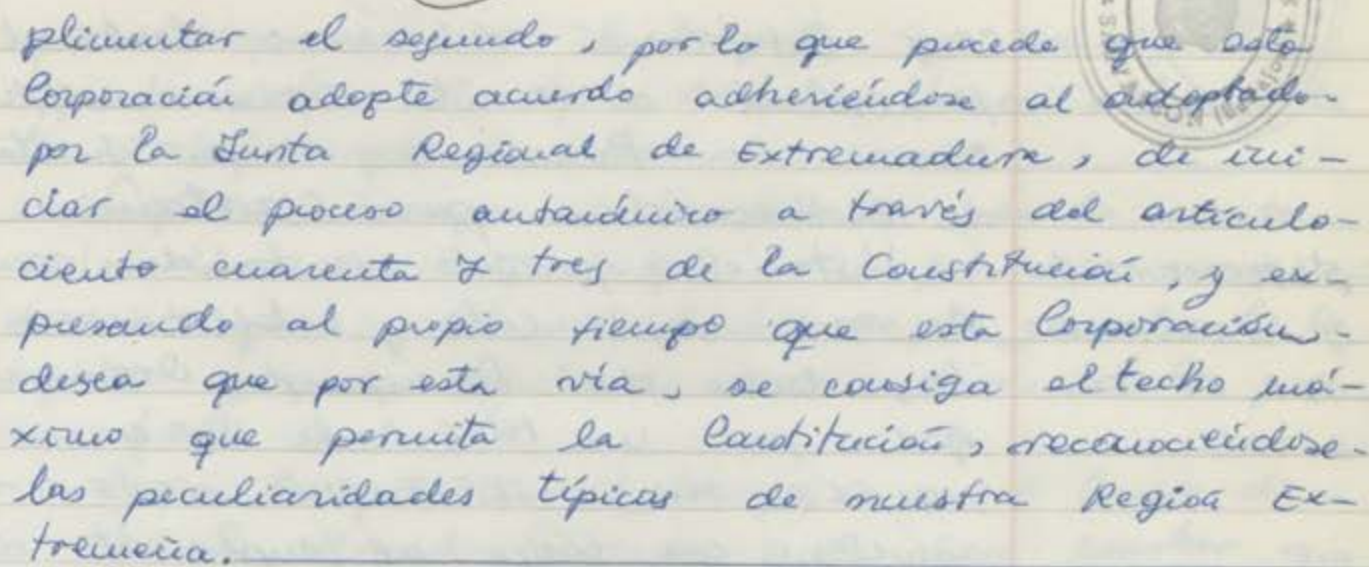 plimentar el segundo, por lo que procede que esta
Corporación adopte acuerdo adheriéndose al adoptado-
por la Junta Regional de Extremadura, de ini-
ciar el proceso autonómico a través del artículo-
ciento cuarenta y tres de la Constitución, y ex-
presando al propio tiempo que esta Corporación-
desea que por esta vía, se consiga el techo má-
ximo que permita la Constitución, reconociéndose-
las peculiaridades típicas de nuestra Región Ex-
tremeña.